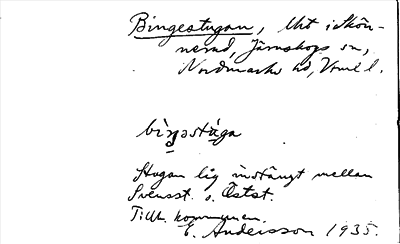 Bingestugan, Utt i skön-
nerud, Järnskogs sn,
Nordmarks hd, Vrml l.
biŋəstuga
Stugan låg instängt mellan
Svensst. o. Östst.
Tillh. kommunen.
E. Andersson 1935.